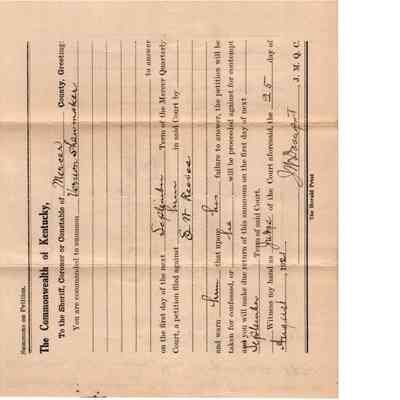 Summons on Petition.
The Commonwealth of Kentucky,
To the Sheriff, Coroner or Constable of Mercer County, Greeting:
You are commanded to summon Vernon Shewmaker
to answer
on the first day of the next September Term of the Mercer Quarterly
Court, a petition filed against him in said Court by
S. W. Reeves
and warn him that upon his failure to answer, the petition will be
taken for confessed, or he will be proceeded against for contempt
and you will make due return of this summons on the first day of next
September Term of said Court.
Witness my hand as Judge of the Court aforesaid, the 25 day of
August, 1921.
J. M. Q. C.
The Herald Print